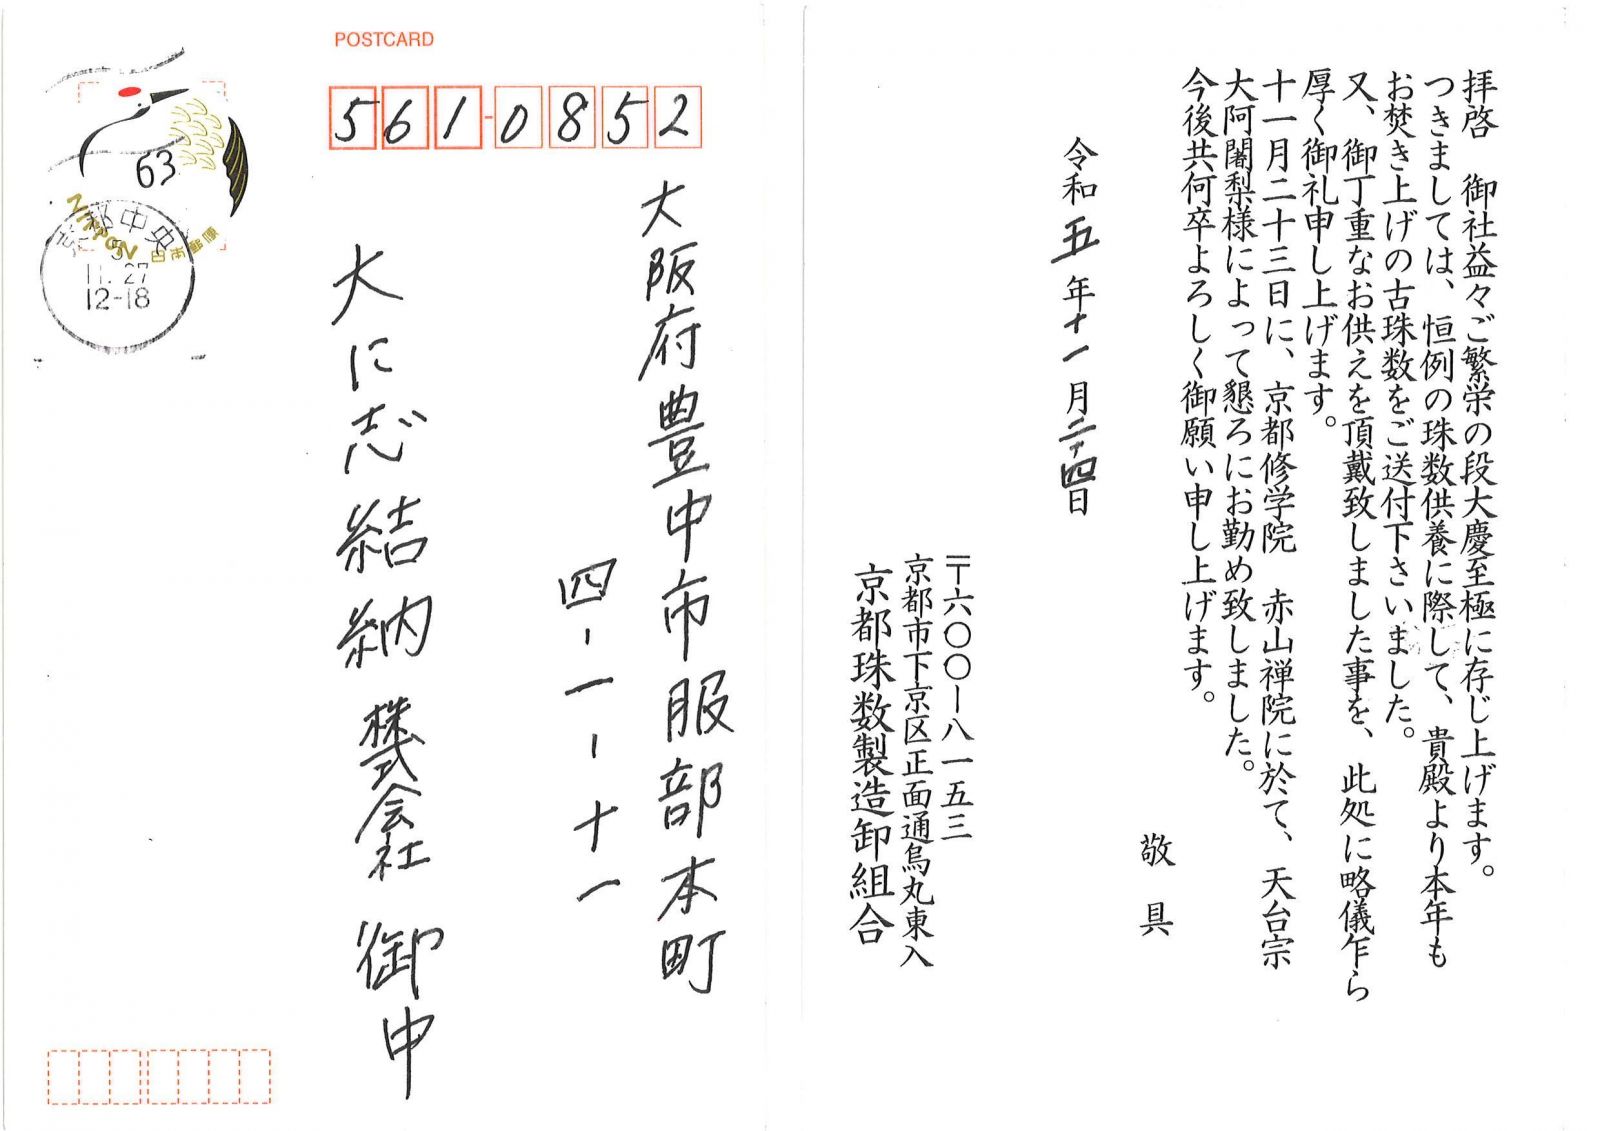 POSTCARD
561-0852
63
NIPPON
日本郵便
京都中央
5
11.27
12-18
大阪府豊中市服部本町
四-一-十一
大に志結納株式会社御中
拝啓　御社益々ご繁栄の段大慶至極に存じ上げます。
つきましては、恒例の珠数供養に際して、貴殿より本年も
お焚き上げの古珠数をご送付下さいました。
又、御丁重なお供えを頂戴致しました事を、此処に略儀乍ら
厚く御礼申し上げます。
十一月二十三日に、京都修学院　赤山禅院に於て、天台宗
大阿闍梨様によって懇ろにお勤め致しました。
今後共何卒よろしく御願い申し上げます。
敬具
令和五年十一月二十四日
〒六〇〇－八一五三
京都市下京区正面通烏丸東入
京都珠数製造卸組合